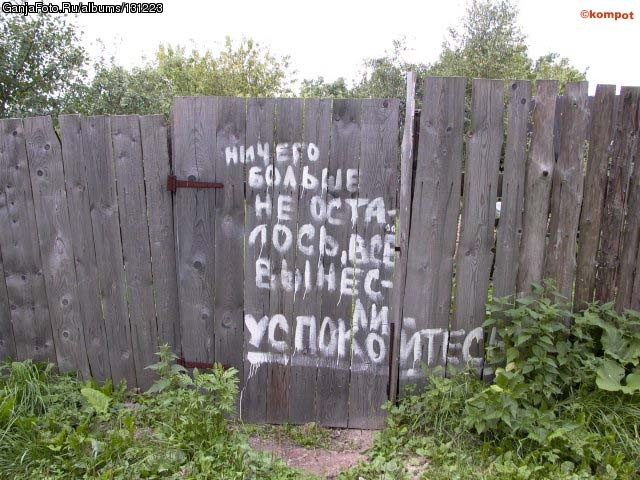 GanjaFoto.Ru/albums/131223
©kompot
НИЧЕГО
БОЛЬШЕ
НЕ ОСТА-
ЛОСЬ, ВСЁ
ВЫНЕС-
ЛИ
УСПОКОЙТЕСЬ